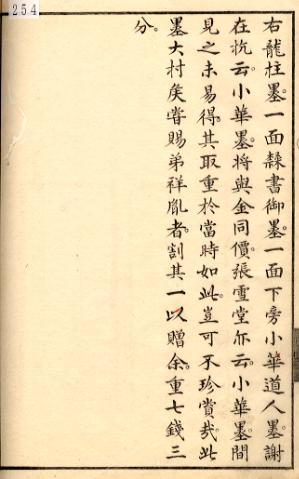 254
右龍柱墨。一面隸書御墨。一面下旁小華道人墨。謝
在杭云。小華墨。将與金同價。張雪堂亦云。小華墨。間
見之未易得。其取重於當時如此。豈可不珍賞哉。此
墨大村矦嘗賜弟祥胤者。割其一以贈余。重七錢三
分。